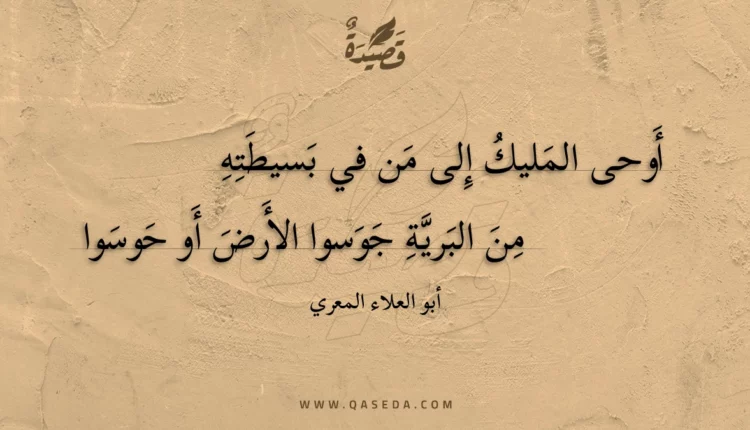 قَصِيدَةٌ
أَوحى المَليكُ إِلى مَن في بَسيطَتِهِ
مِنَ البَريَّةِ جَوَسوا الأَرضَ أَو حَوسَوا
أبو العلاء المعري
WWW.QASEDA.COM